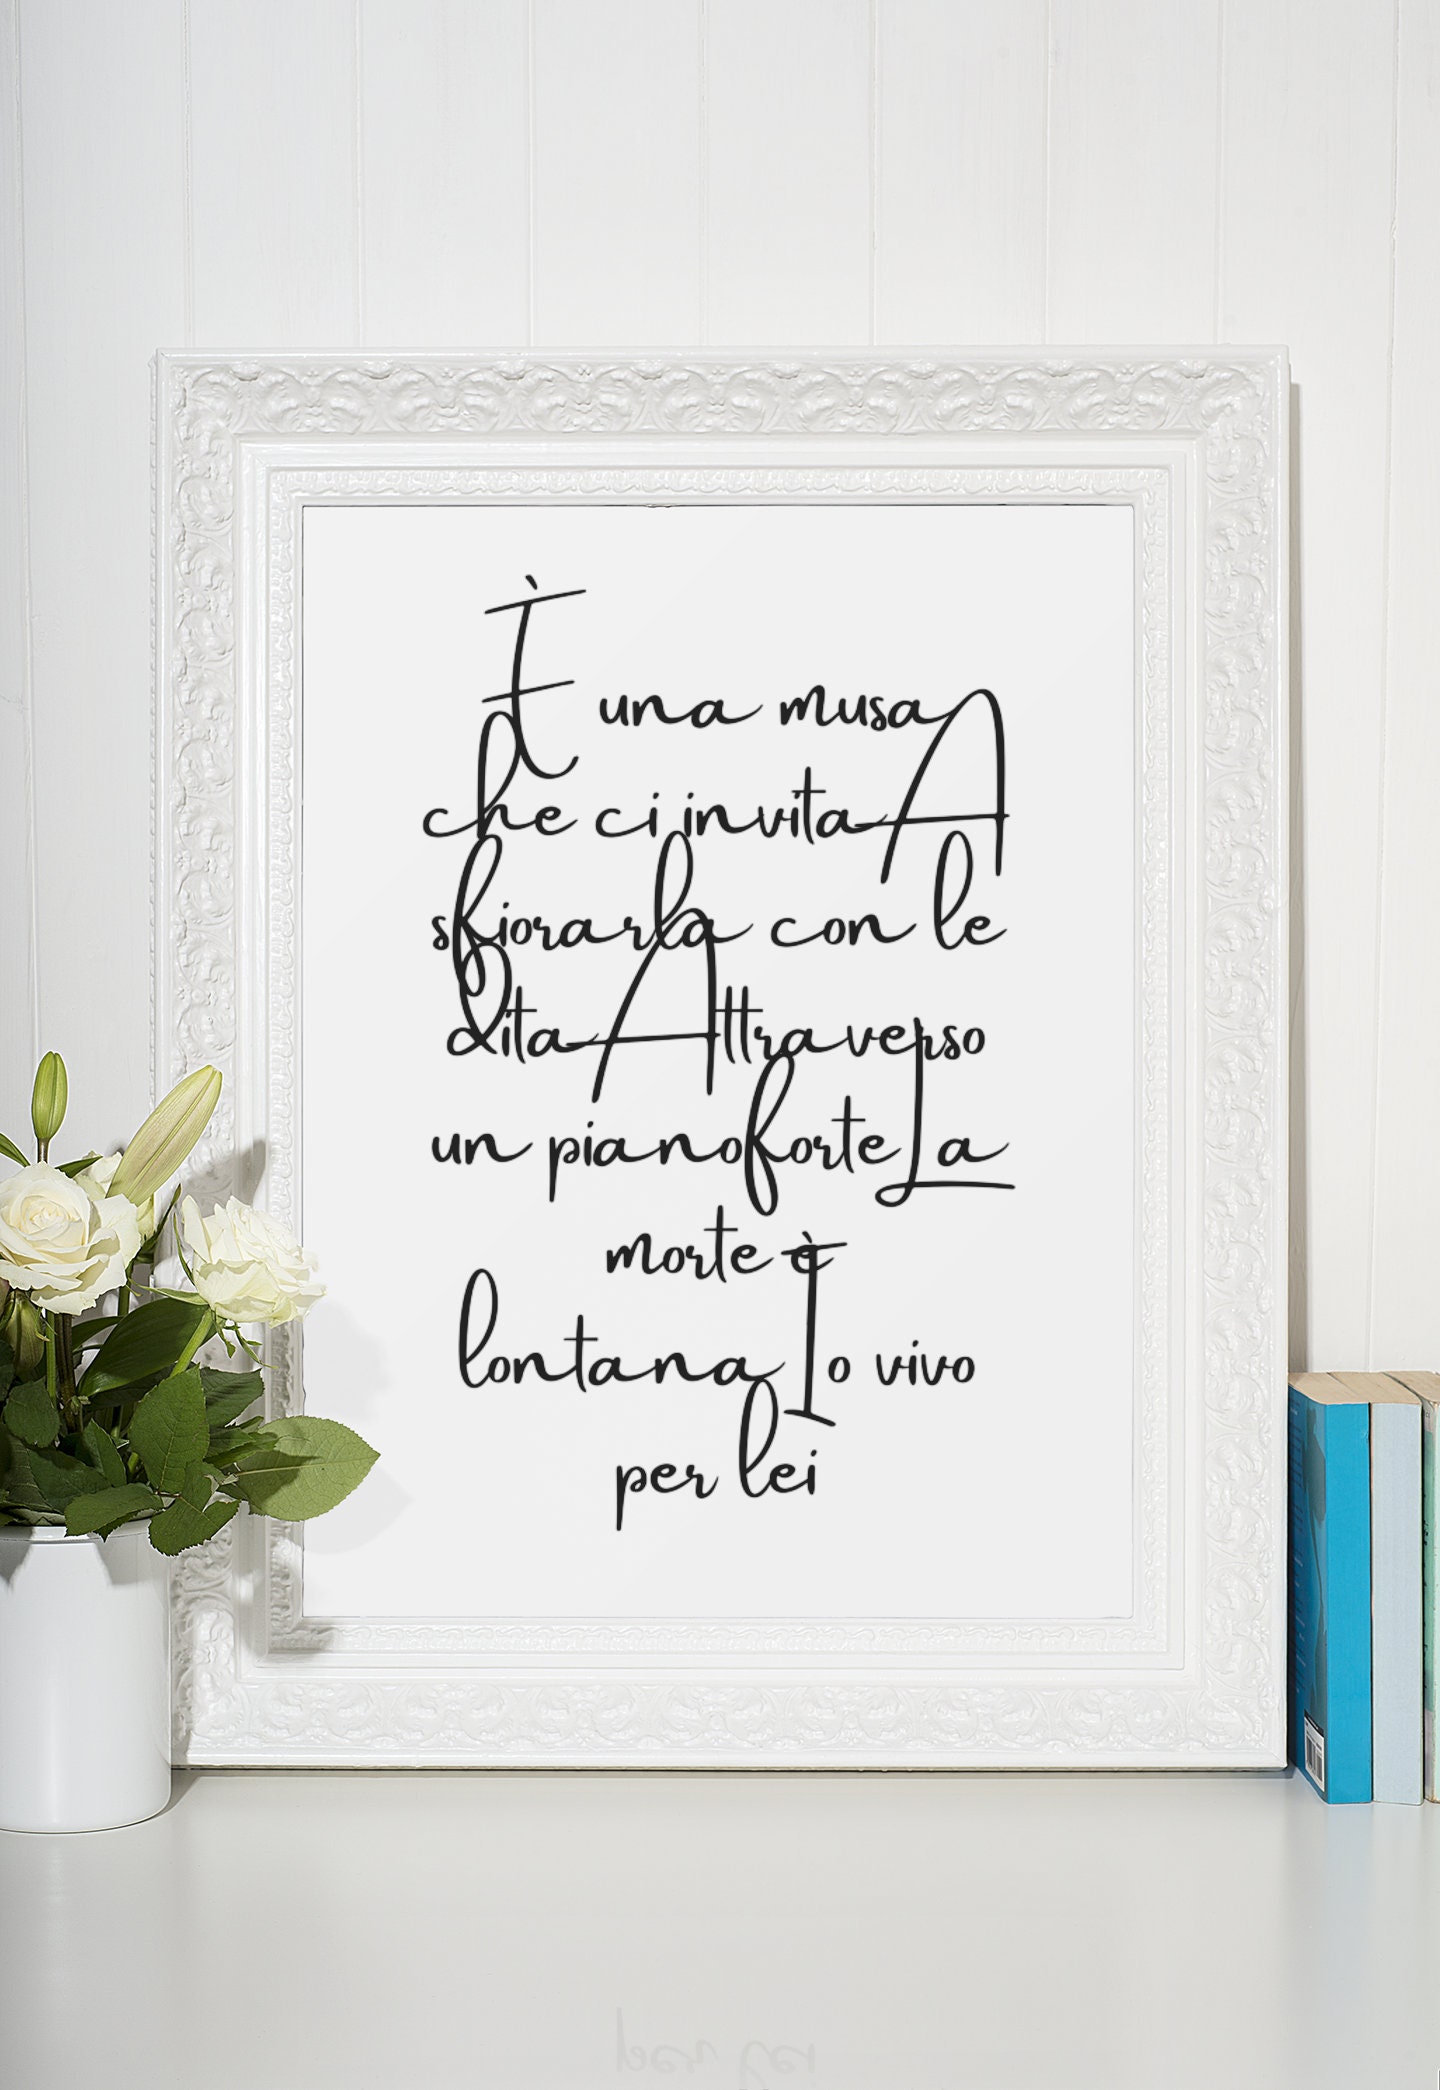 È una musa
che ci invita A
sfiorarla con le
dita Attraverso
un pianoforte La
morte è
lontana Io vivo
per lei